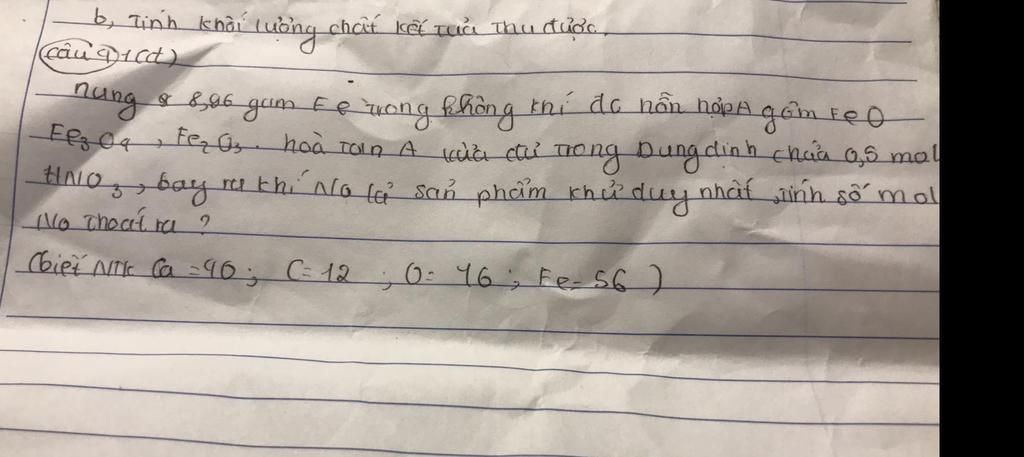 b, Tính khối lượng chất kết tủa thu được.
câu 4) 1(đ)
nung 8 8,96 gam Fe trong không khí đc hỗn hợp A gồm FeO
Fe3O4, Fe2O3. hoà tan A vừa đủ trong Dung dịnh chứa 0,5 mol
HNO3, bay ra khí NO là sản phẩm khử duy nhất, tính số mol
No thoát ra?
(biết NTK Ca = 40; C = 12; O = 16; Fe = 56)